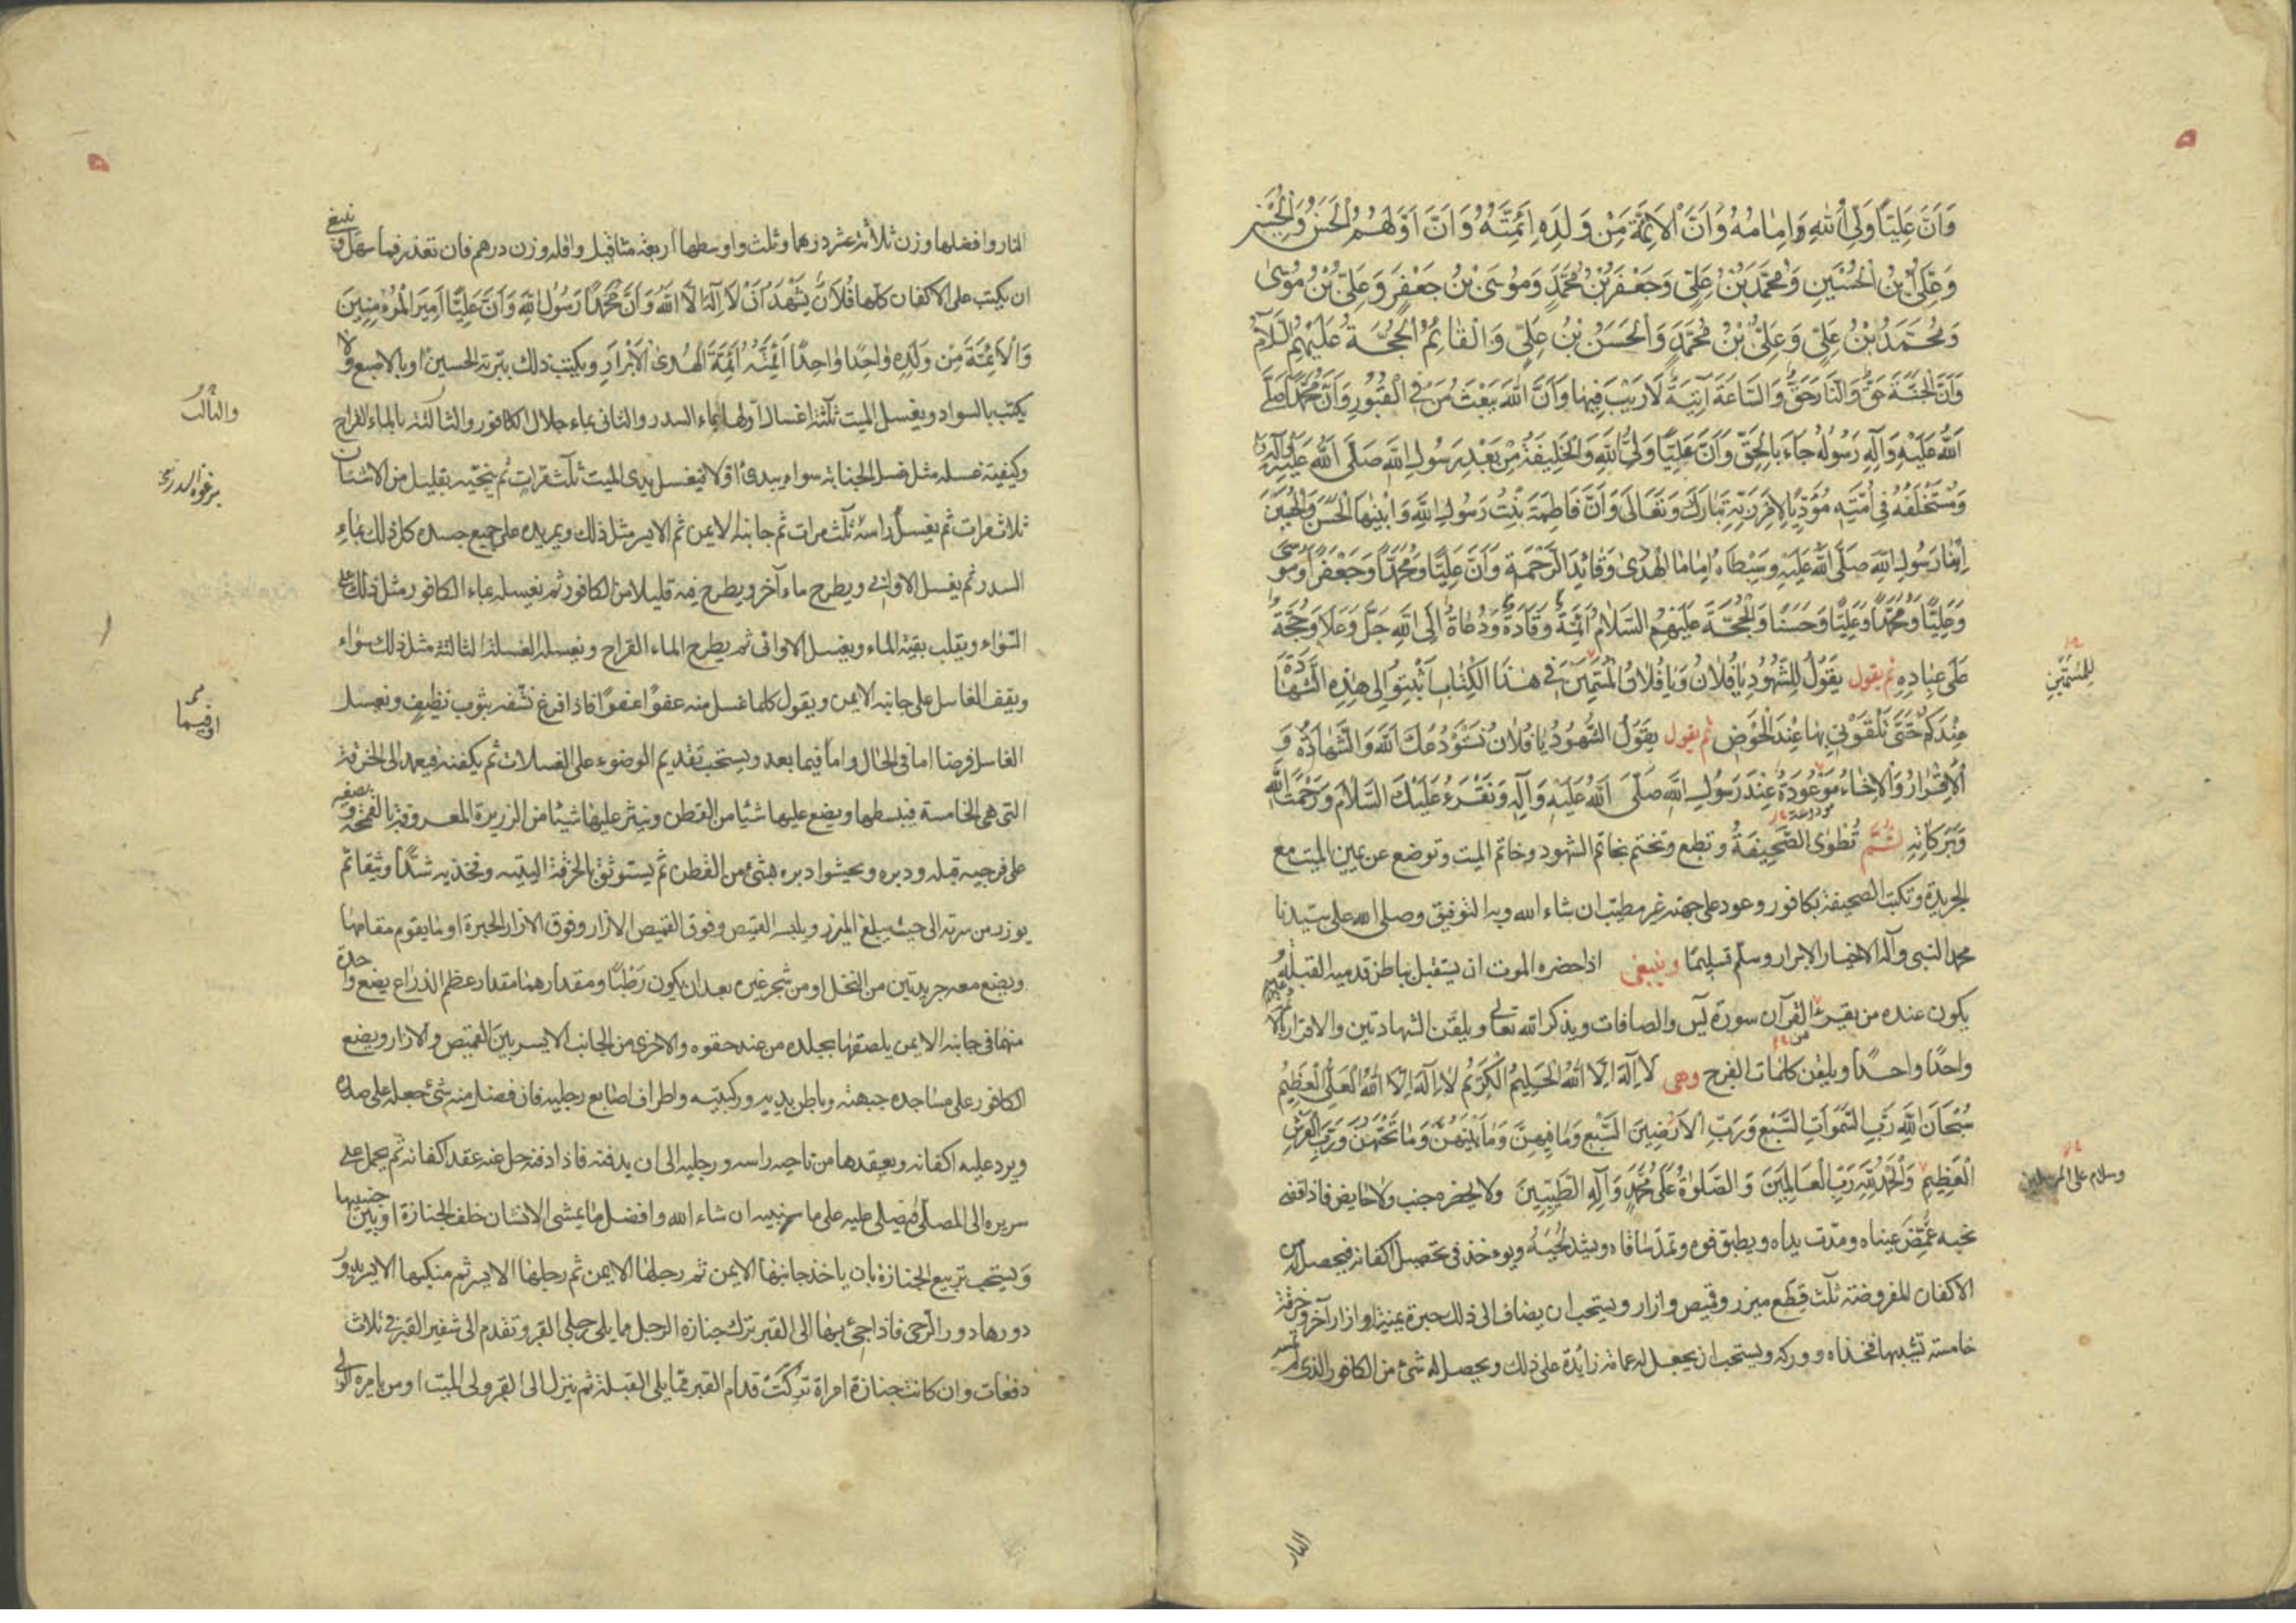 وَاَنَّ عَلِيًّا وَلِيُّ اللهِ وَاِمَامُهُ وَاَنَّ الْاَئِمَّةَ مِنْ وَلَدِهِ اَئِمَّتُهُ وَاَنَّ اَوَّلَهُمُ الْحَسَنُ وَالْحُسَيْنُ
وَعَلِيُّ بْنُ الْحُسَيْنِ وَمُحَمَّدُ بْنُ عَلِيٍّ وَجَعْفَرُ بْنُ مُحَمَّدٍ وَمُوسَى بْنُ جَعْفَرٍ وَعَلِيُّ بْنُ مُوسَى
وَمُحَمَّدُ بْنُ عَلِيٍّ وَعَلِيُّ بْنُ مُحَمَّدٍ وَالْحَسَنُ بْنُ عَلِيٍّ وَالْقَائِمُ الْحُجَّةُ عَلَيْهِمُ السَّلَامُ
وَاَنَّ الْجَنَّةَ حَقٌّ وَالنَّارَ حَقٌّ وَالسَّاعَةَ آتِيَةٌ لَا رَيْبَ فِيهَا وَاَنَّ اللهَ يَبْعَثُ مَنْ فِي الْقُبُورِ وَاَنَّ مُحَمَّدًا صَلَّى
اللهُ عَلَيْهِ وَآلِهِ رَسُولُهُ جَاءَ بِالْحَقِّ وَاَنَّ عَلِيًّا وَلِيُّ اللهِ وَالْخَلِيفَةُ مِنْ بَعْدِ رَسُولِ اللهِ صَلَّى اللهُ عَلَيْهِ وَآلِهِ
وَمُسْتَخْلَفُهُ فِي اُمَّتِهِ مُؤَدِّيًا لِاَمْرِ رَبِّهِ تَبَارَكَ وَتَعَالَى وَاَنَّ فَاطِمَةَ بِنْتُ رَسُولِ اللهِ وَابْنَيْهَا الْحَسَنَ وَالْحُسَيْنَ
اِبْنَا رَسُولِ اللهِ صَلَّى اللهُ عَلَيْهِ وَسِبْطَاهُ اِمَامَا الْهُدَى وَقَائِدَا الرَّحْمَةِ وَاَنَّ عَلِيًّا وَمُحَمَّدًا وَجَعْفَرًا وَمُوسَى
وَعَلِيًّا وَمُحَمَّدًا وَعَلِيًّا وَحَسَنًا وَالْحُجَّةَ عَلَيْهِمُ السَّلَامُ اَئِمَّةٌ وَقَادَةٌ وَدُعَاةٌ اِلَى اللهِ جَلَّ وَعَلَا وَحُجَّةٌ
عَلَى عِبَادِهِ ثم يقول يَقُولُ لِلشُّهُودِ يَا فُلَانُ وَيَا فُلَانُ الْمُسَمَّيْنَ فِي هٰذَا الْكِتَابِ اَثْبِتُوا لِي هٰذِهِ الشَّهَادَةَ
عِنْدَكُمْ حَتَّى تَلْقَوْنِي بِهَا عِنْدَ الْحَوْضِ ثم يقول يَقُولُ الشُّهُودُ يَا فُلَانُ نَسْتَوْدِعُكَ اللهَ وَالشَّهَادَةُ وَ
الْاِقْرَارُ وَالْاِخَاءُ مَوْعُودَةٌ عِنْدَ رَسُولِ اللهِ صَلَّى اللهُ عَلَيْهِ وَآلِهِ وَنَقْرَءُ عَلَيْكَ السَّلَامَ وَرَحْمَةُ اللهِ
وَبَرَكَاتُهُ ثُمَّ تُطْوَى الصَّحِيفَةُ وتطبع وتختم بخاتم الشهود وخاتم الميت وتوضع عن يمين الميت مع
الجريدة وتكتب الصحيفة بكافور وعود على جهته غير مطيب ان شاء الله وبه التوفيق وصلى الله على سيدنا
محمد النبي وآله الاخيار الابرار وسلم تسليمًا وينبغي اذا حضره الموت ان يستقبل بباطن قدميه القبلة و
يكون عنده من يقرء القرآن سورة يس والصافات ويذكر الله تعالى ويلقن الشهادتين والاقرار
واحدًا واحدًا ويلقن كلمات الفرج وهي لَا اِلٰهَ اِلَّا اللهُ الْحَلِيمُ الْكَرِيمُ لَا اِلٰهَ اِلَّا اللهُ الْعَلِيُّ الْعَظِيمُ
سُبْحَانَ اللهِ رَبِّ السَّمٰوَاتِ السَّبْعِ وَرَبِّ الْاَرَضِينَ السَّبْعِ وَمَا فِيهِنَّ وَمَا بَيْنَهُنَّ وَمَا تَحْتَهُنَّ وَرَبِّ الْعَرْشِ
الْعَظِيمِ وَالْحَمْدُ لِلّٰهِ رَبِّ الْعَالَمِينَ وَالصَّلٰوةُ عَلَى مُحَمَّدٍ وَآلِهِ الطَّيِّبِينَ ولا يحضره جنب ولا حايض فاذا قضى
نحبه غُمِّضَ عيناه ومدّت يداه ويطبق فوه وتمدّ ساقاه ويشد لحيته ويوءخذ في تحصيل اكفانه فيحصل
الاكفان المفروضة ثلث قطع ميزر وقميص وازار ويستحب ان يضاف الى ذلك حبرة يمنية او ازار آخر وخرقة
خامسة تشد بها فخذاه ووركه ويستحب ان يجعل له عمامة زائدة على ذلك ويحصل له شئ من الكافور الذي لم تمسه
النار
للمسمّين
وسلام على المرسلين
النار وافضلها وزن ثلاثة عشر درهما وثلث واوسطها اربعة مثاقيل واقله وزن درهم فان تعذر فما سهل وينبغي
ان يكتب على الاكفان كلها فُلَانٌ يَشْهَدُ اَنْ لَا اِلٰهَ اِلَّا اللهُ وَاَنَّ مُحَمَّدًا رَسُولُ اللهِ وَاَنَّ عَلِيًّا اَمِيرَ الْمُؤْمِنِينَ
وَالْاَئِمَّةَ مِنْ وَلَدِهِ وَاحِدًا وَاحِدًا اَئِمَّتُهُ اَئِمَّةَ الْهُدَى الْاَبْرَارِ ويكتب ذلك بتربة الحسين او بالاصبع ولا
يكتب بالسواد ويغسل الميت ثلثة اغسال اولها بماء السدر والثاني بماء جلال الكافور والثالثة بالماء القراح
وكيفية غسله مثل غسل الجنابة سواء يبدئ اولا فيغسل يدي الميت ثلث مرات ثم ينجيه بقليل من الاشنان
ثلاث مرات ثم يغسل راسه ثلث مرات ثم جانبه الايمن ثم الايسر مثل ذلك ويمر يده على جميع جسده كل ذلك بماء
السدر ثم يغسل الاواني ويطرح ماء آخر ويطرح فيه قليلا من الكافور ثم يغسله بماء الكافور مثل ذلك على
السواء ويقلب بقية الماء ويغسل الاواني ثم يطرح الماء القراح ويغسله الغسلة الثالثة مثل ذلك سواء
ويقف الغاسل على جانبه الايمن ويقول كلما غسل منه عفوًا عفوًا فاذا فرغ نشفه بثوب نظيف ويغسل
الغاسل فرضا اما في الحال واما فيما بعد ويستحب تقديم الوضوء على الغسلات ثم يكفنه فيعمد الى الخرقة
التي هي الخامسة فيبسطها ويضع عليها شيًا من القطن وينثر عليها شيئا من الزريرة المعروفة بالقمحة ويضعه
على فرجيه قبله ودبره ويحشوا دبره بشئ من القطن ثم يستوثق بالخرقة اليتيه وفخذيه شدًّا وثيقا ثم
يوزر من سرته الى حيث يبلغ الميزر ويلبسه القميص وفوق القميص الازار وفوق الازار الحبرة او ما يقوم مقامها
ويضع معه جريدتين من النخل او من شجر غيره بعد ان يكون رَطْبًا ومقدارهما مقدار عظم الذراع يضع واحدة
منهما في جانبه الايمن يلصقها بجلده من عند حقوه والاخرى من الجانب الايسر بين القميص والازار ويضع
الكافور على مساجده جبهته وباطن يديه وركبتيه واطراف اصابع رجليه فان فضل منه شئ جعله على صدره
ويرد عليه اكفانه ويعقدها من ناحية راسه ورجليه الى ان يدفنه فاذا دفنه حل عنه عقد اكفانه ثم يحمل على
سريره الى المصلى فيصلى عليه على ما سنبينه ان شاء الله وافضل ما يمشي الانسان خلف الجنازة او بين جنبيها
ويستحب تربيع الجنازة بان ياخذ جانبها الايمن ثم رجلها الايمن ثم رجلها الايسر ثم منكبها الايسر يدور
دورها دور الرحى فاذا جئ بها الى القبر ترك جنازة الرجل مما يلي رجلي القبر وتقدم الى شفير القبر في ثلاث
دفعات وان كانت جنازة امراة تركت قدام القبر مما يلي القبلة ثم ينزل الى القبر ولي الميت او من يامره الولي
والثالث
او فيما